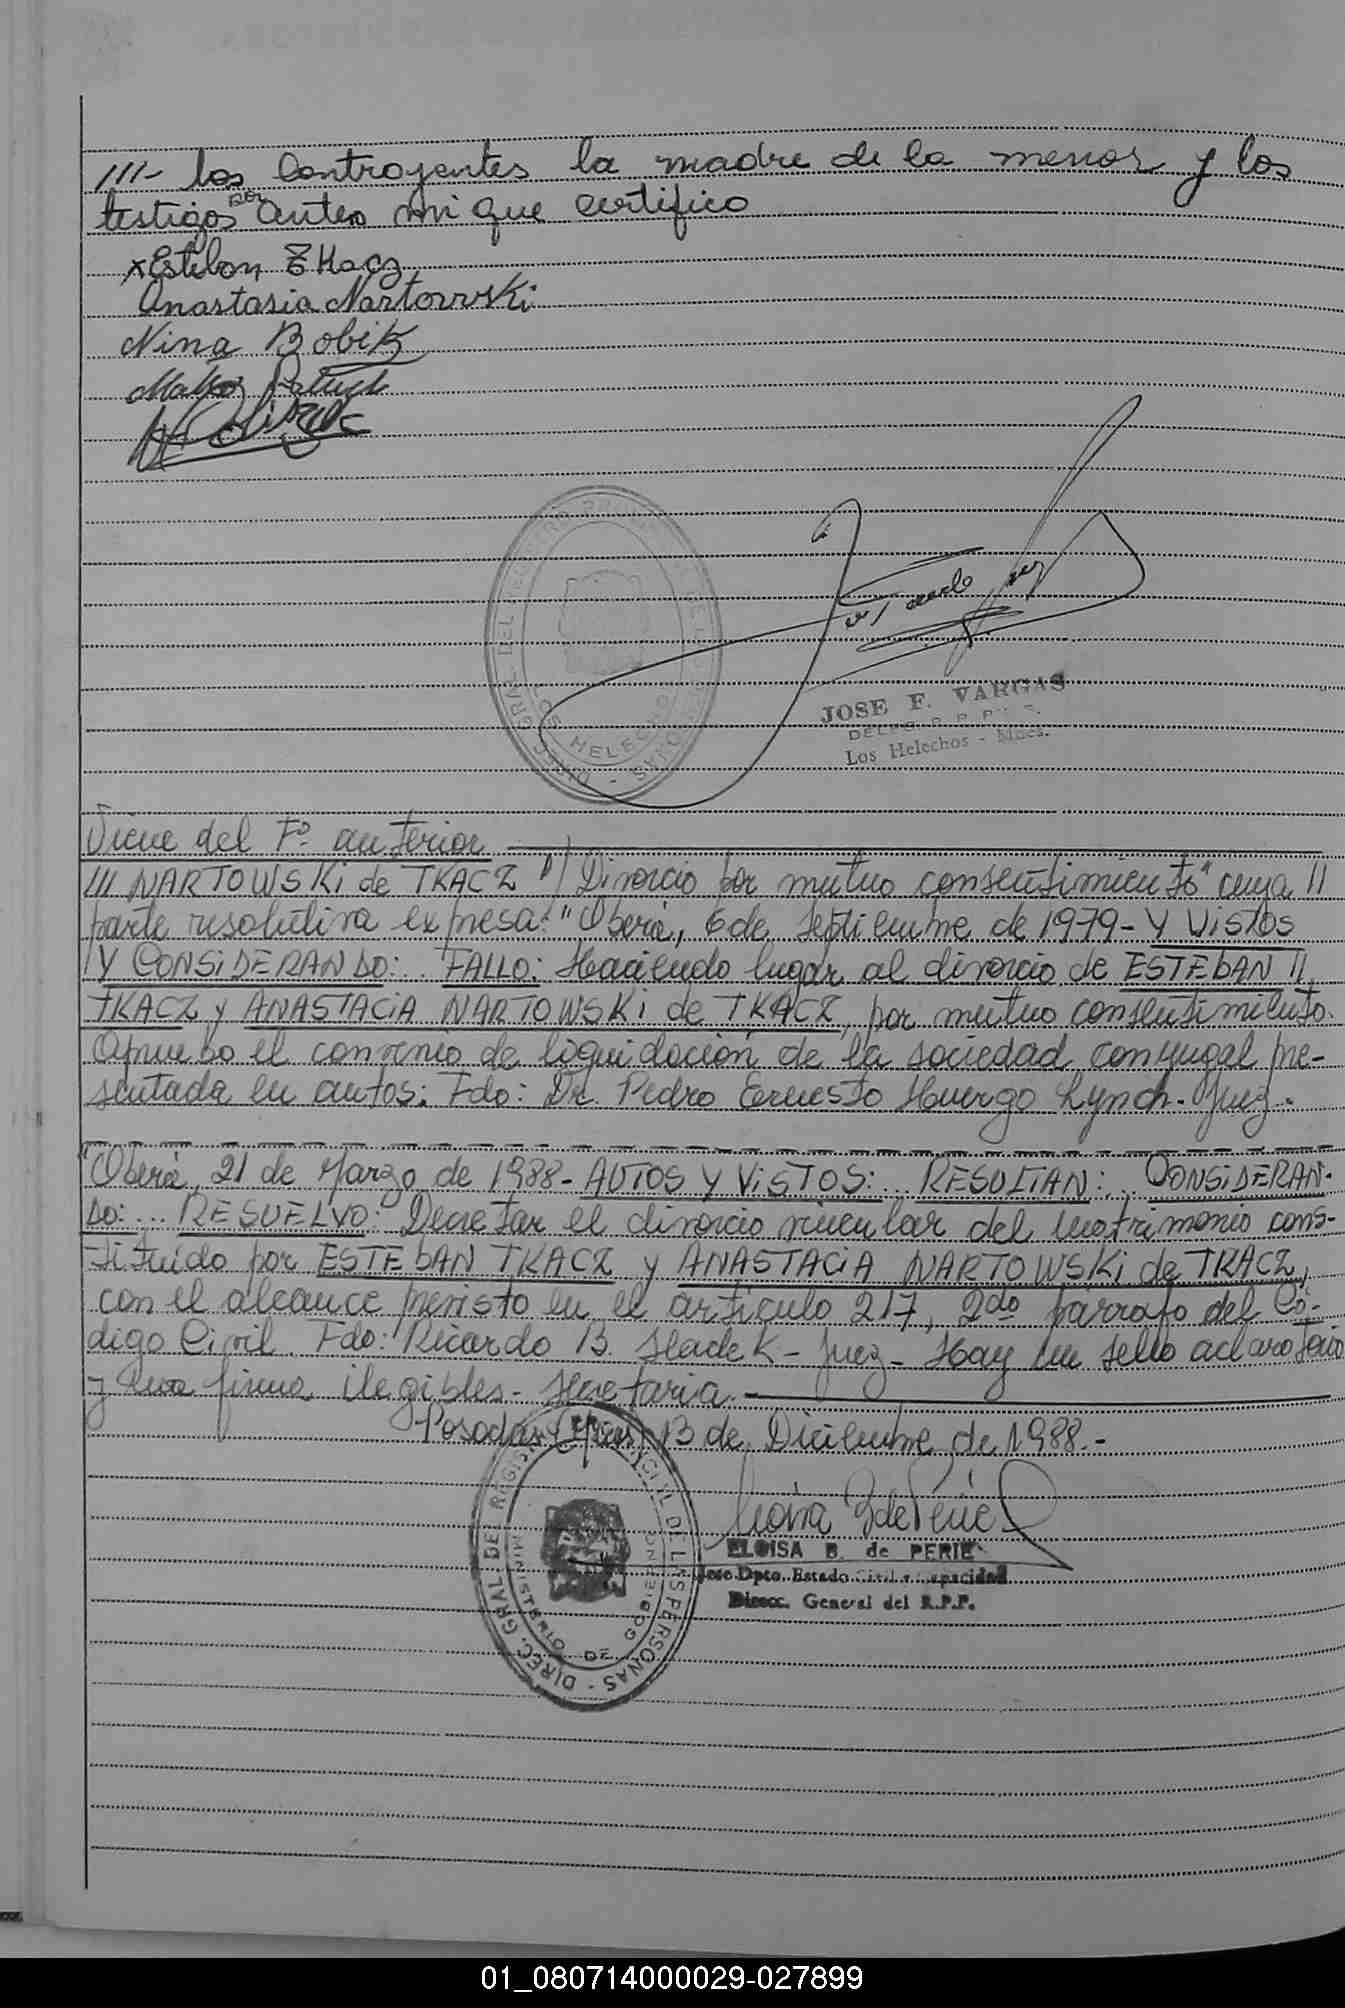 ///- los contrayentes la madre de la menor y los
testigos por antes mi que certifico
x Esteban Tkacz
Anastasia Nartowski
Nina Bobik
DIREC. GRAL. DEL REGISTRO PROV. DE LAS PERSONAS
LOS HELECHOS
JOSE F. VARGAS
Los Helechos - Mnes.
Viene del Fº anterior
/// NARTOWSKi de TKACZ "/ Divorcio por mutuo consentimiento" cuya //
parte resolutiva expresa: "Oberá, 6 de septiembre de 1979- Y VISTOS
Y CONSIDERANDO: . FALLO: Haciendo lugar al divorcio de ESTEBAN //
TKACZ y ANASTACiA NARTOWSKi de TKACZ, por mutuo consentimiento.
Apruebo el convenio de liquidación de la sociedad conyugal pre-
sentada en autos. Fdo: Dr. Pedro Ernesto Huergo Lynch. Juez.
"Oberá, 21 de Marzo de 1988- AUTOS Y ViSTOS: .. RESULTAN: . CONSiDERAN-
DO: ... RESUELVO: Decretar el divorcio vincular del matrimonio cons-
tituído por ESTEBAN TKACZ y ANASTACiA NARTOWSKi de TKACZ,
con el alcance previsto en el artículo 217, 2do párrafo del Có-
digo Civil. Fdo: Ricardo B. Sladek - Juez - Hay un sello aclaratorio
y una firma ilegibles - Secretaria.
Posadas (Mnes) 13 de Diciembre de 1988.-
DIREC. GRAL. DEL REGIS CIVIL DE LAS PERSONAS
MINISTERIO DE GOBIERNO
ELOISA B. de PERIE
Jefe Dpto. Estado Civil y Capacidad
Direcc. General del R.P.P.
01_080714000029-027899